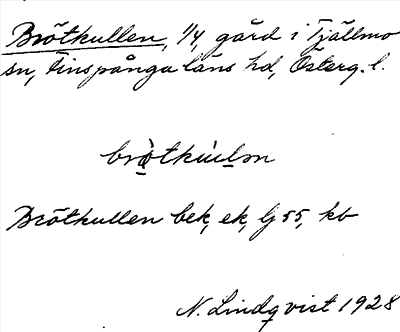 Brötkullen, 1/4, gård i Tjällmo
sn, Finspånga läns hd, Österg. l.
brò̱tkùu̱lm
Brötkullen bek, ek, lj 55, kb
N. Lindqvist 1928